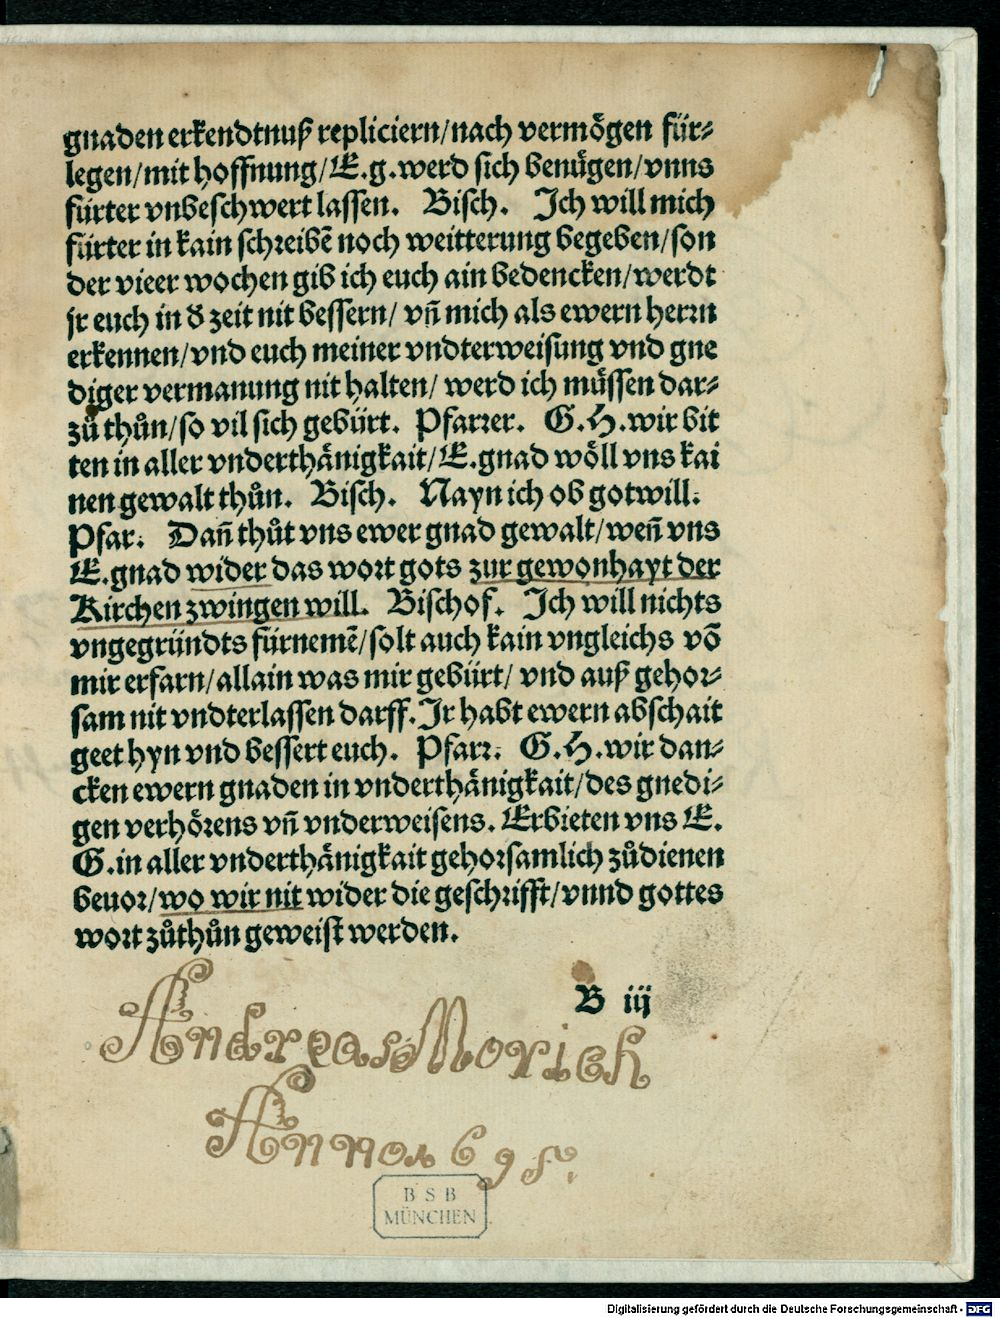 gnaden erkendtnuß repliciern/nach vermögen für⸗
legen/mit hoffnung/E.g.werd sich benügen/vnns
fürter vnbeschwert lassen. Bisch. Ich will mich
fürter in kain schreibē noch weitterung begeben/son
der vieer wochen gib ich euch ain bedencken/werdt
jr euch in d̕ zeit nit bessern/ vñ mich als ewern herrn
erkennen/vnd euch meiner vndterweisung vnd gne
diger vermanung nit halten/ werd ich müssen dar⸗
zů thůn/so vil sich gebürt. Pfarrer. G.H.wir bit
ten in aller vnderthänigkait/E.gnad wöll vns kai
nen gewalt thůn. Bisch. Nayn ich ob gotwill.
Pfar. Dañ thůt vns ewer gnad gewalt/weñ vns
E.gnad wider das wort gots zur gewonhayt der
Kirchen zwingen will. Bischof. Ich will nichts
vngegründts fürnemē/solt auch kain vngleichs vō
mir erfarn/allain was mir gebürt/ vnd auß gehor⸗
sam nit vndterlassen darff.Ir habt ewern abschait
geet hyn vnd bessert euch. Pfarr. G.H.wir dan⸗
cken ewern gnaden in vnderthänigkait/des gnedi⸗
gen verhörens vñ vnderweisens. Erbieten vns E.
G.in aller vnderthänigkait gehorsamlich zůdienen
beuor/wo wir nit wider die geschrifft/vnnd gottes
wort zůthůn geweist werden.
B iij
Andreas Morich
Anno 1695.
BSB
MÜNCHEN
Digitalisierung gefördert durch die Deutsche Forschungsgemeinschaft - DFG